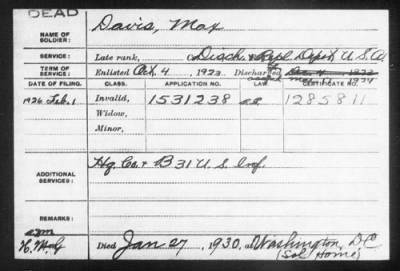 DEAD
NAME OF SOLDIER: Davis, Max
SERVICE: Late rank, Disch. Depot, U.S.A.
TERM OF SERVICE: Enlisted Oct. 4, 1922, Discharged 1924
DATE OF FILING. CLASS. APPLICATION NO. LAW. CERTIFICATE NO.
1926 Feb. 1 Invalid, 1531238 1285811
Widow,
Minor,
ADDITIONAL SERVICES: Hq. Co. & B 31 U.S. Inf.
REMARKS:
Died Jan 27, 1930, at Washington, D.C.
(Sol Home)